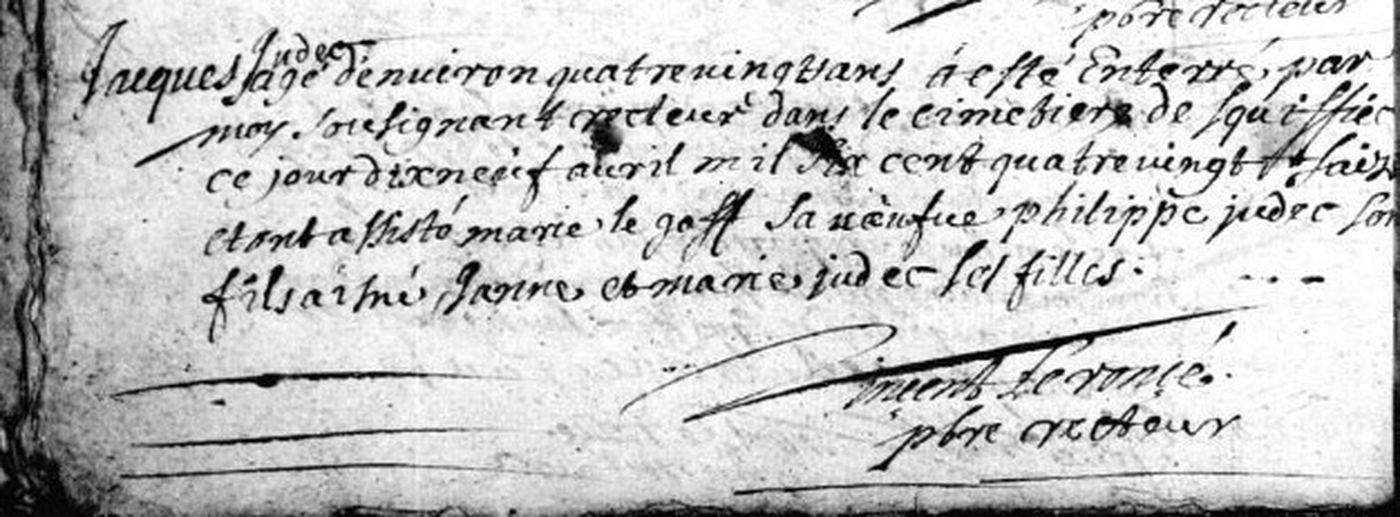 pbre recteur
Judec
Jacques agé denuiron quatreuingts ans á esté Enterré par
moy sousignant recteur dans le cimetiere de squiffiec
ce jour dixneuf auril mil six cent quatreuingt saize
et ont assisté marie le goff sa uœufue philippe judec son
fils aisné Janne et marie judec ses filles.
uincent Le roncé.
pbre recteur